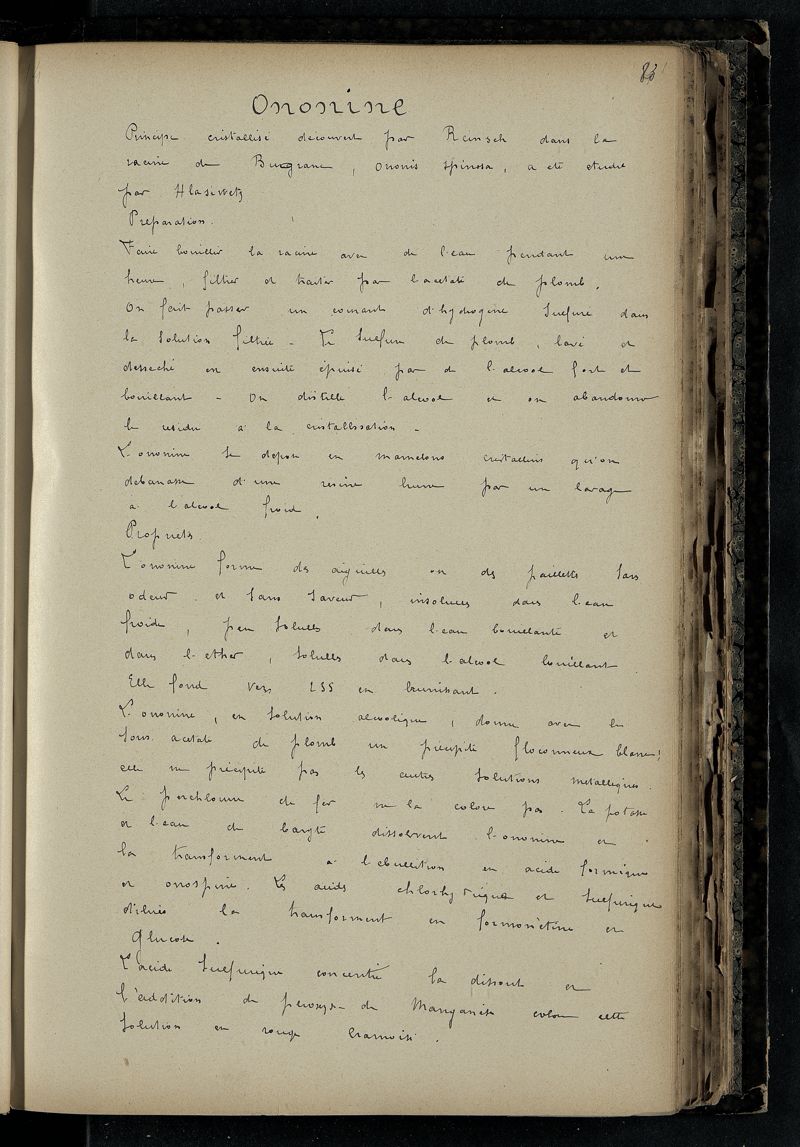 83
Ononine
Principe cristallisé decouvert par Reinsch dans la
racine de Bugrane, ononis spinosa, a eté etudié
par Hlasiwetz
Preparation.
Faire bouillir la racine avec de l'eau pendant une
heure, filtrer et traiter par l'acetate de plomb.
On fait passer un courant d'hydrogène sulfuré dans
la solution filtrée - Le sulfure de plomb, lavé et
desseché est ensuite épuisé par de l'alcool fort et
bouillant - On distille l'alcool et on abandonne
le residu a la cristallisation -
L'ononine se depose en mamelons cristallins qu'on
debarrasse d'une resine brune par un lavage
a l'alcool froid.
Propriets.
L'ononine forme des aiguilles ou des paillettes sans
odeur et sans saveur, insolubles dans l'eau
froide, peu solubles dans l'eau bouillante et
dans l'ether, solubles dans l'alcool bouillant
Elle fond vers 255 en brunissant.
L'ononine, en solution alcoolique, donne avec le
sous acetate de plomb un précipité floconneux blanc;
elle ne précipite pas les autres solutions metalliques.
Le perchlorure de fer ne la colore pas. La potasse
et l'eau de baryte dissolvent l'ononine et
la transforment a l'ebullition en acide formique
et onospine. Les acides chlorhydrique et sulfurique
dilués la transforment en formonétine et
glucose.
L'acide sulfurique concentré la dissout et
l'addition de peroxyde de Manganèse colore cette
solution en rouge cramoisi.